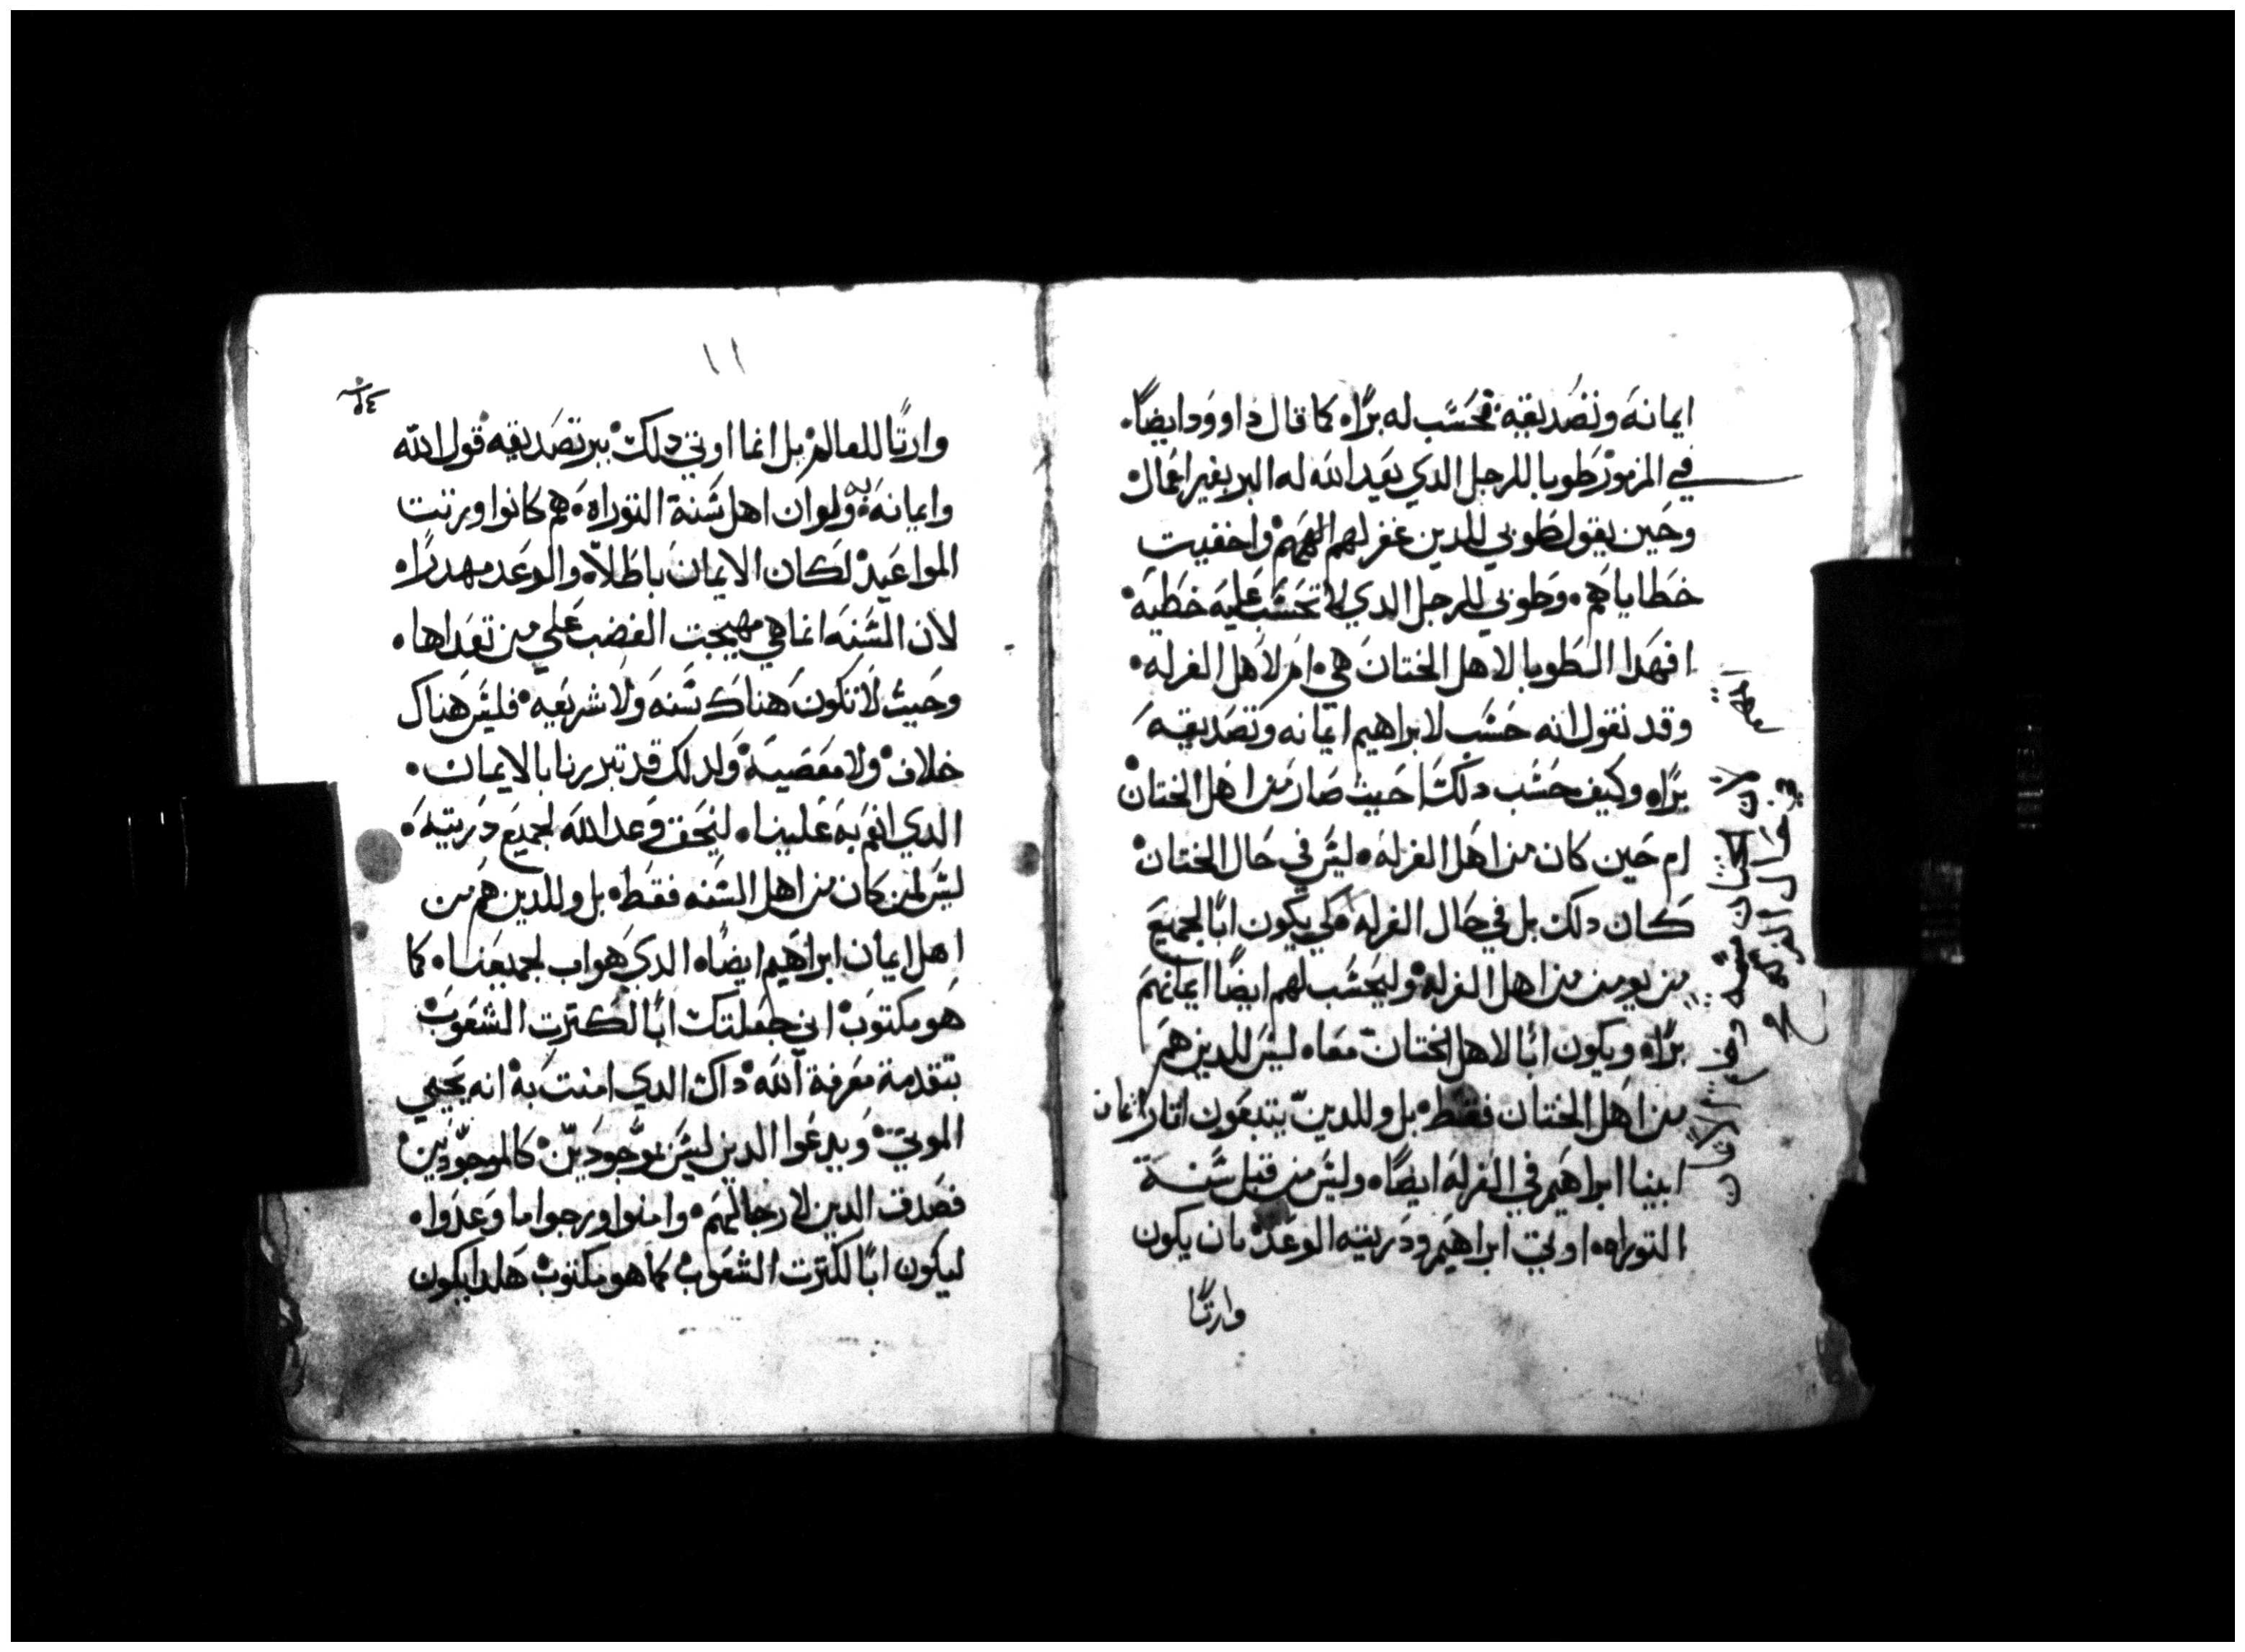 ايمانه وتصديقه فحسب له برًا ه كما قال داوود ايضًا.
في المزمور طوبا للرجل الدي يعد الله له البر بغير اعمال
وحين يقول طوبي للدين غفر لهم اثمهم واخفيت
خطاياهم ۰ وطوبي للرجل الدي لا تحسب عليه خطيه ۰
افهدا الطوبا لاهل الختان هي ۰ ام لاهل الغرله ۰
وقد نقول انه حسب لابراهيم ايمانه وتصديقه
برًا ه وكيف حسب دلك احيث صار من اهل الختان
ام حين كان من اهل الغرله ۰ ليس في حال الختان
كان دلك بل في حال الغرله لكي يكون ابًا لجميع
من يومن من اهل الغرله ۰ وليحسب لهم ايضًا ايمانهم
برًا ه ويكون ابًا لاهل الختان معًا ه ليس للدين هم
من اهل الختان فقط ۰ بل وللدين يتبعون اتار ايمان
ابينا ابراهيم في الغرله ايضًا ه وليس من قبل سنة
التوراه ۰ اوتي ابراهيم ودريته الوعد ۰ بان يكون
وارتًا
لان الختان سمه
في حال الغرله
١١
وارتًا للعالم ۰ بل انما اوتي دلك ۰ ببر تصديقه قول الله
وايمانه به ولو ان اهل سنة التوراه ۰ هم كانوا ورتت
المواعيد ۰ لكان الايمان باطلًا ه والوعد مهدرًا ه
لان السنه انما هي مهيجت الغضب علي من تعداها ۰
وحيث لا تكون هناك سنه ولا شريعه ۰ فليس هناك
خلاف ۰ ولا معصيه ۰ ولدلك قد تبررنا بالايمان ۰
الدي انعم به علينا ه ليحق وعد الله لجميع دريته ۰
ليس لمن كان من اهل السنه فقط ۰ بل وللدين هم من
اهل ايمان ابراهيم ايضًا ه الدي هو اب لجميعنا ه كما
هو مكتوب ۰ اني جعلتك ابًا لكترت الشعوب ۰
بتقدمة معرفة الله ۰ داك الدي امنت به ۰ انه يحيي
الموتي ۰ ويدعوا الدين ليس بموجودين ۰ كالموجودين ۰
فصدق الدين لا رجا لهم ۰ وامنوا ورجوا ما وعدوا ه
ليكون ابًا لكترت الشعوب كما هو مكتوب ۰ هكدا يكون